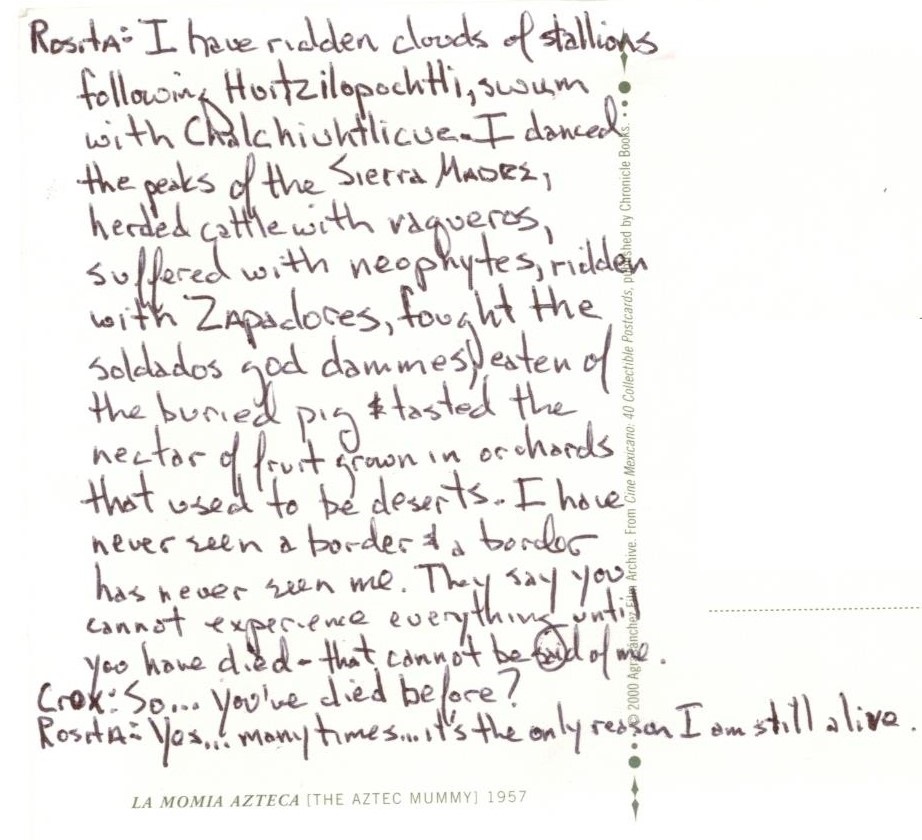 RositA: I have ridden clouds of stallions
following Huitzilopochtli, swum
with Chalchiuhtlicue. I danced
the peaks of the Sierra MADRES,
herded cattle with vaqueros,
suffered with neophytes, ridden
with ZApadores, fought the
soldados god dammes, eaten of
the buried pig & tasted the
nectar of fruit grown in orchards
that used to be deserts. I have
never seen a border & a border
has never seen me. They say you
cannot experience everything until
you have died - that cannot be said of me.
Crox: So... you've died before?
RositA: Yes... many times... it's the only reason I am still alive.
LA MOMIA AZTECA [THE AZTEC MUMMY] 1957
© 2000 Agrasánchez Film Archive. From Cine Mexicano: 40 Collectible Postcards, published by Chronicle Books.